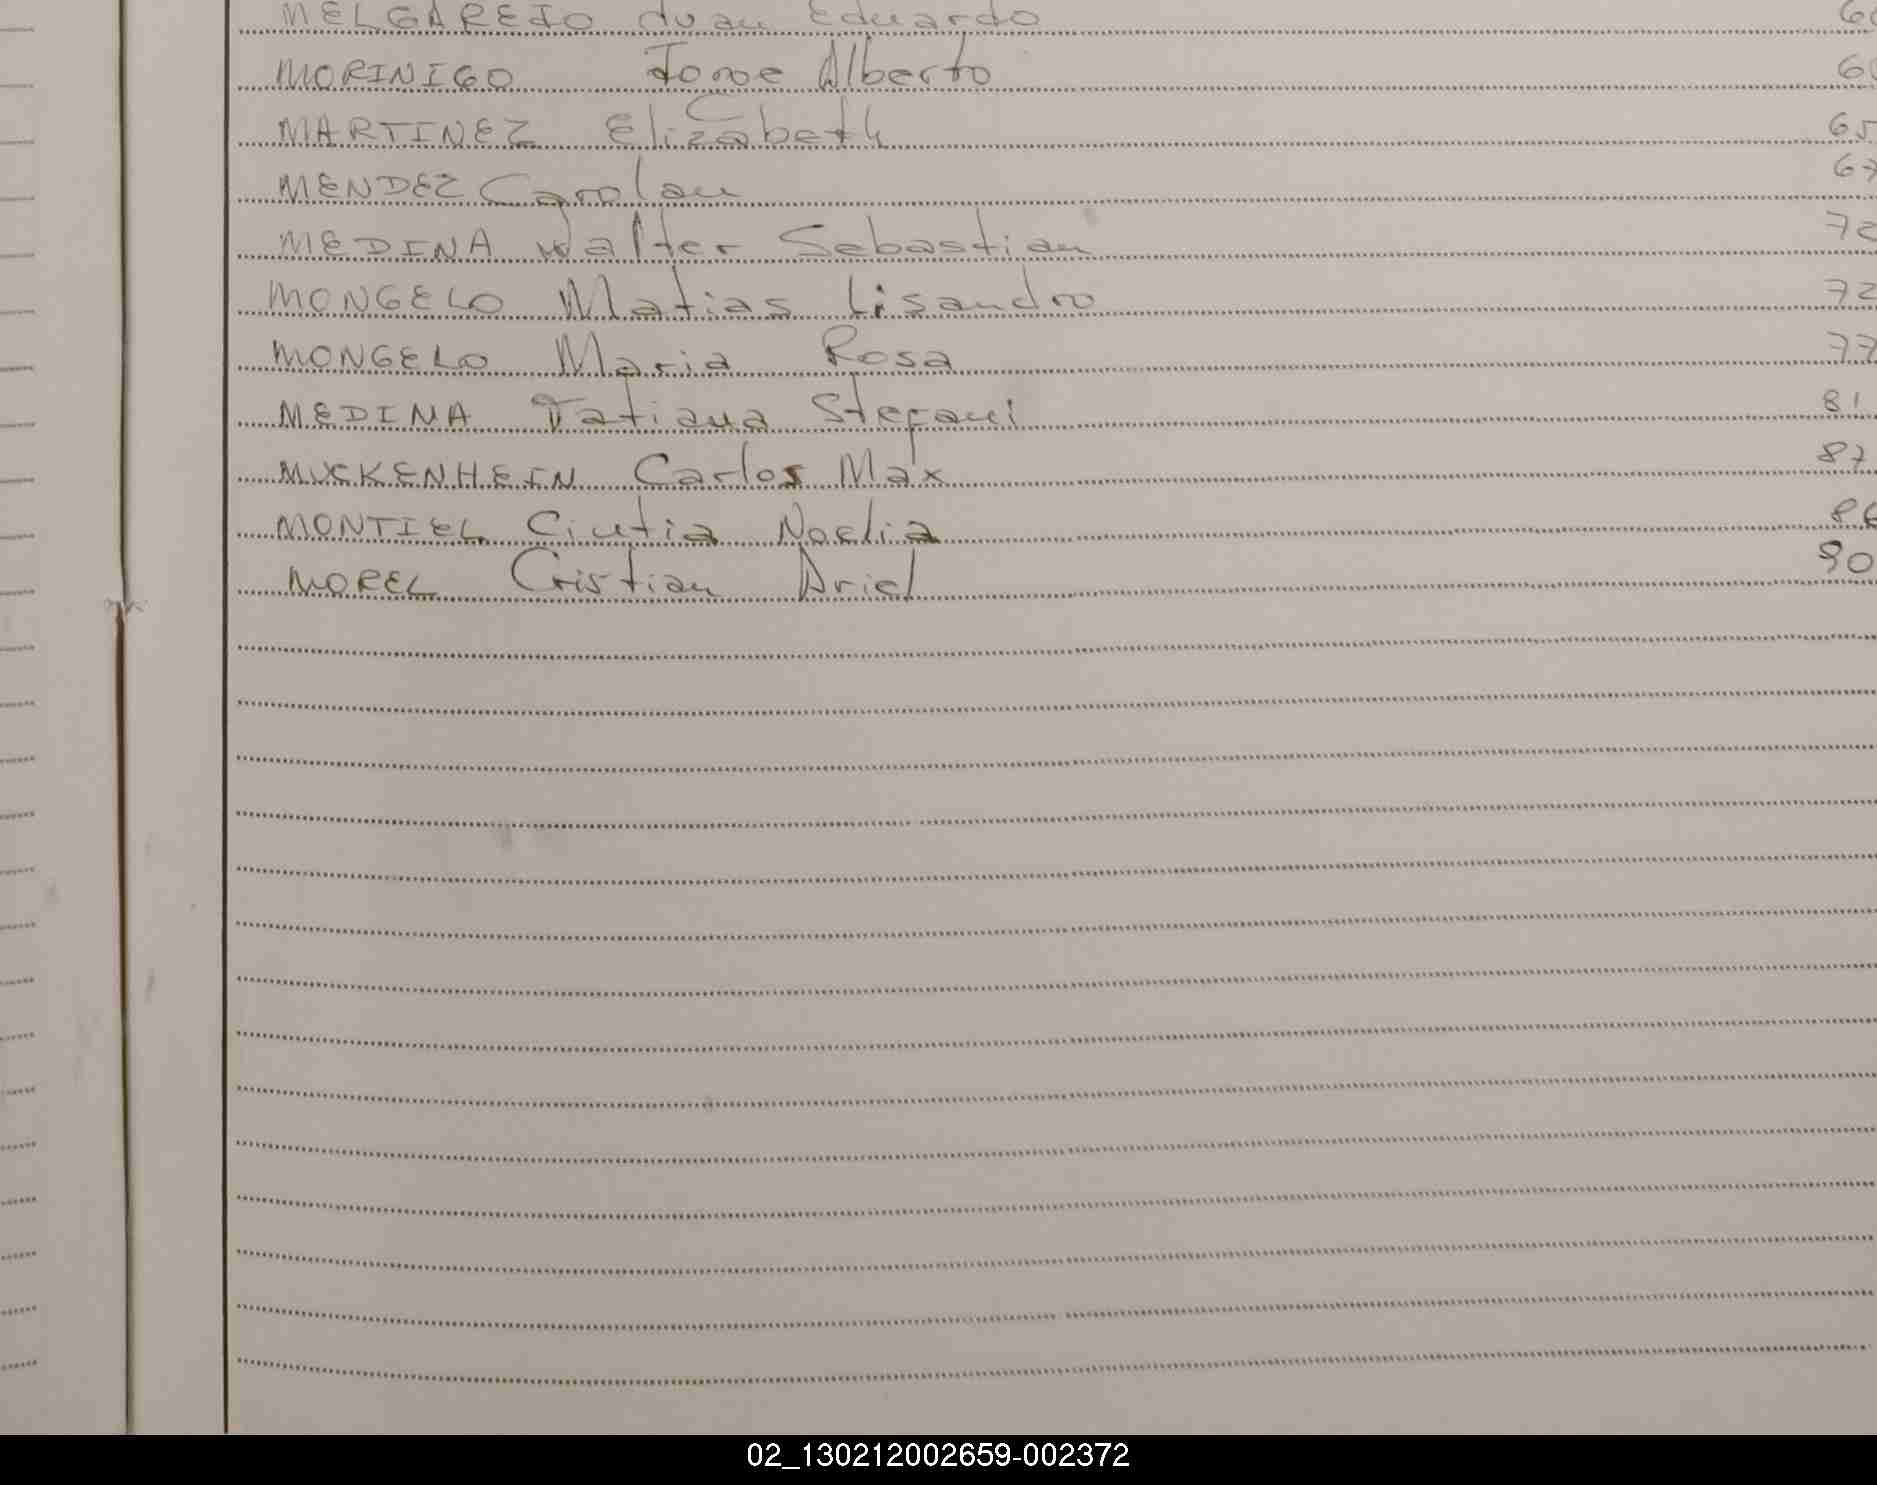 MELGAREJO Juan Eduardo 60
MORINIGO Jorge Alberto 60
MARTINEZ Elizabeth 65
MENDEZ Carolau 67
MEDINA Walter Sebastian 72
MONGELO Matias Lisandro 72
MONGELO Maria Rosa 77
MEDINA Tatiana Stefani 81
MUCKENHEIN Carlos Max 87
MONTIEL Cintia Noelia 86
MOREL Cristian Ariel 90
02_130212002659-002372